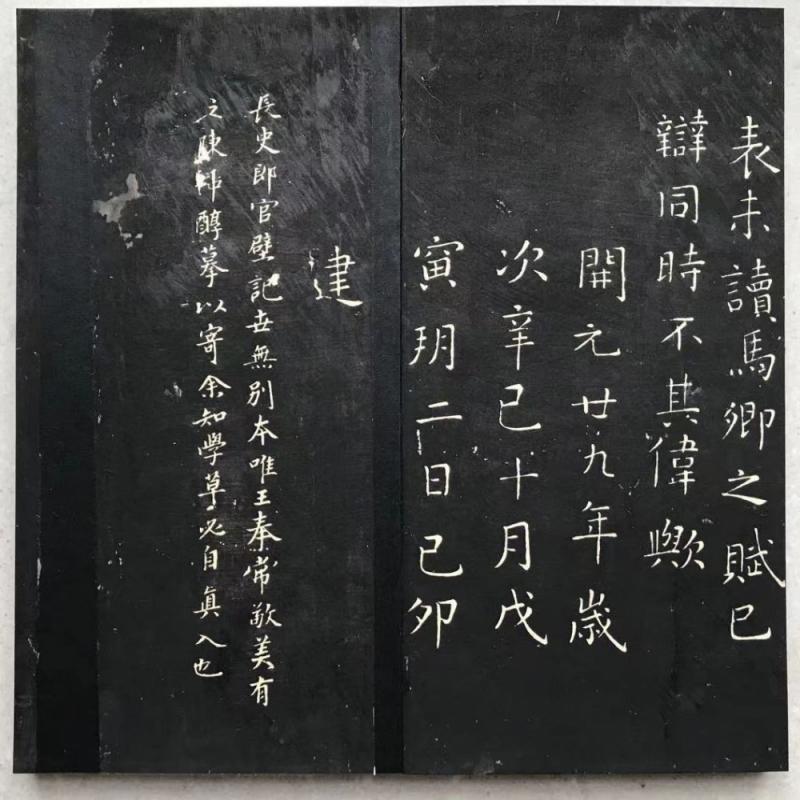 表未讀馬卿之賦已
辯同時不其偉歟
開元廿九年歲
次辛巳十月戊
寅朔二日己卯
建
長史郎官壁記世無別本唯王奉常敬美有
之陳仲醇摹以寄余知學草必自真入也